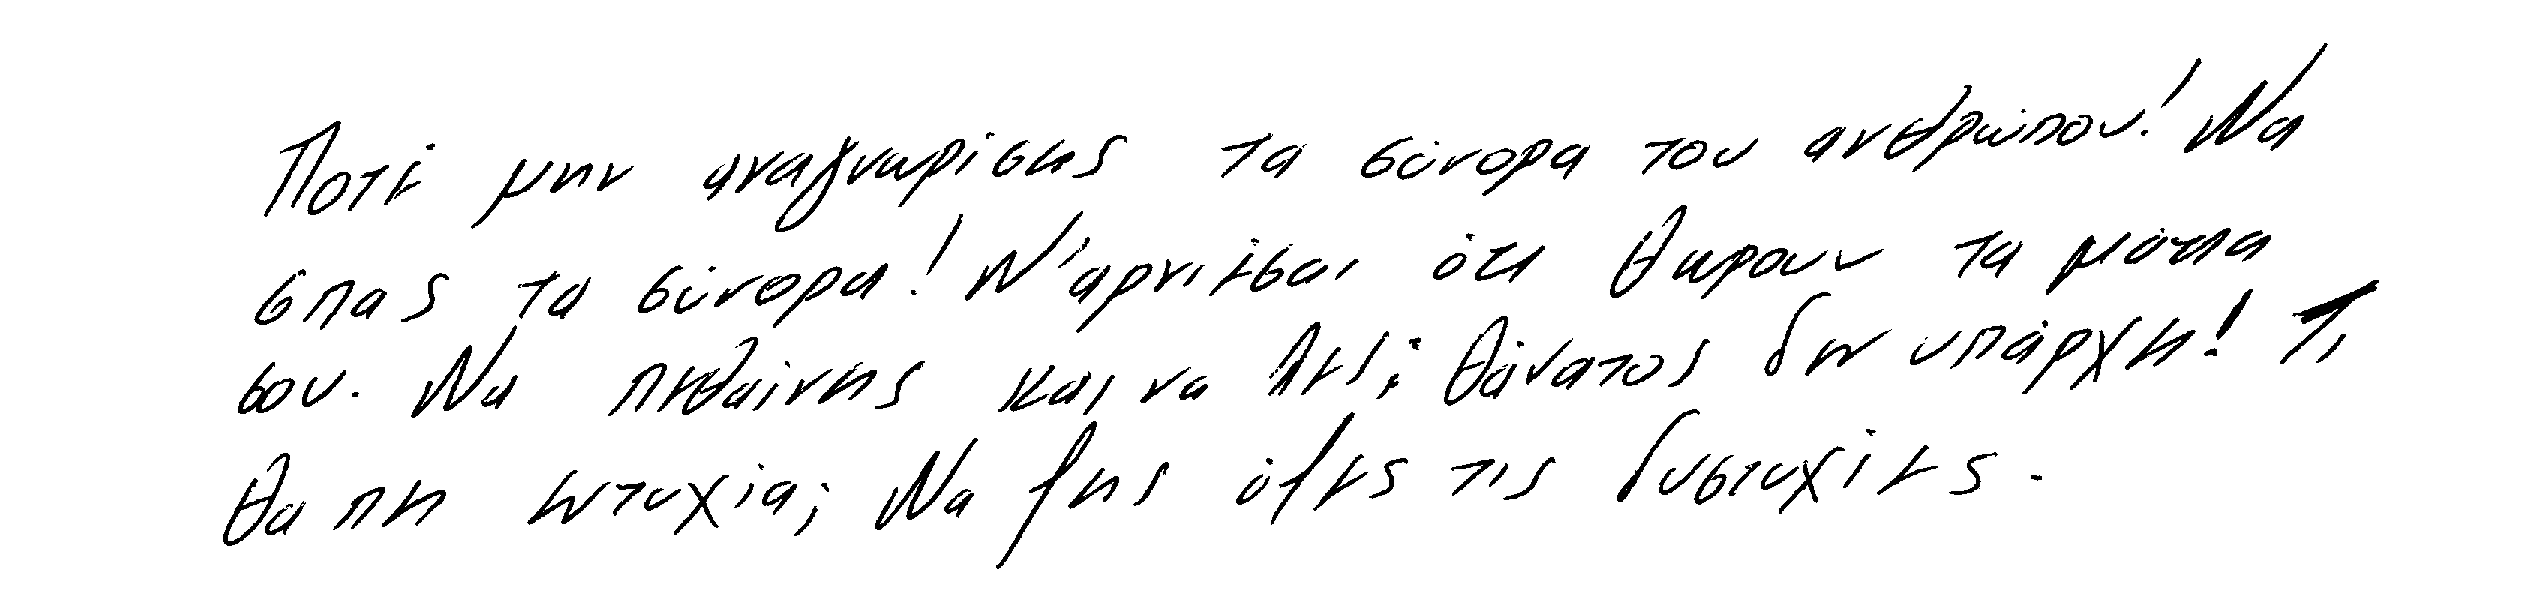 Ποτέ μην αναγνωρίσεις τα σύνορα του ανθρώπου! Να
σπας τα σύνορα! Ν'αρνιέσαι ότι θωρούν τα μάτια
σου. Να πεθαίνεις και να λες; θάνατος δεν υπάρχει! Τι
θα πει ευτυχία; Να ζεις όλες τις δυστυχίες.